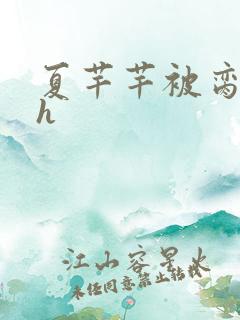 夏芊芊被脔
h
江山容星火
未经同意禁止转载